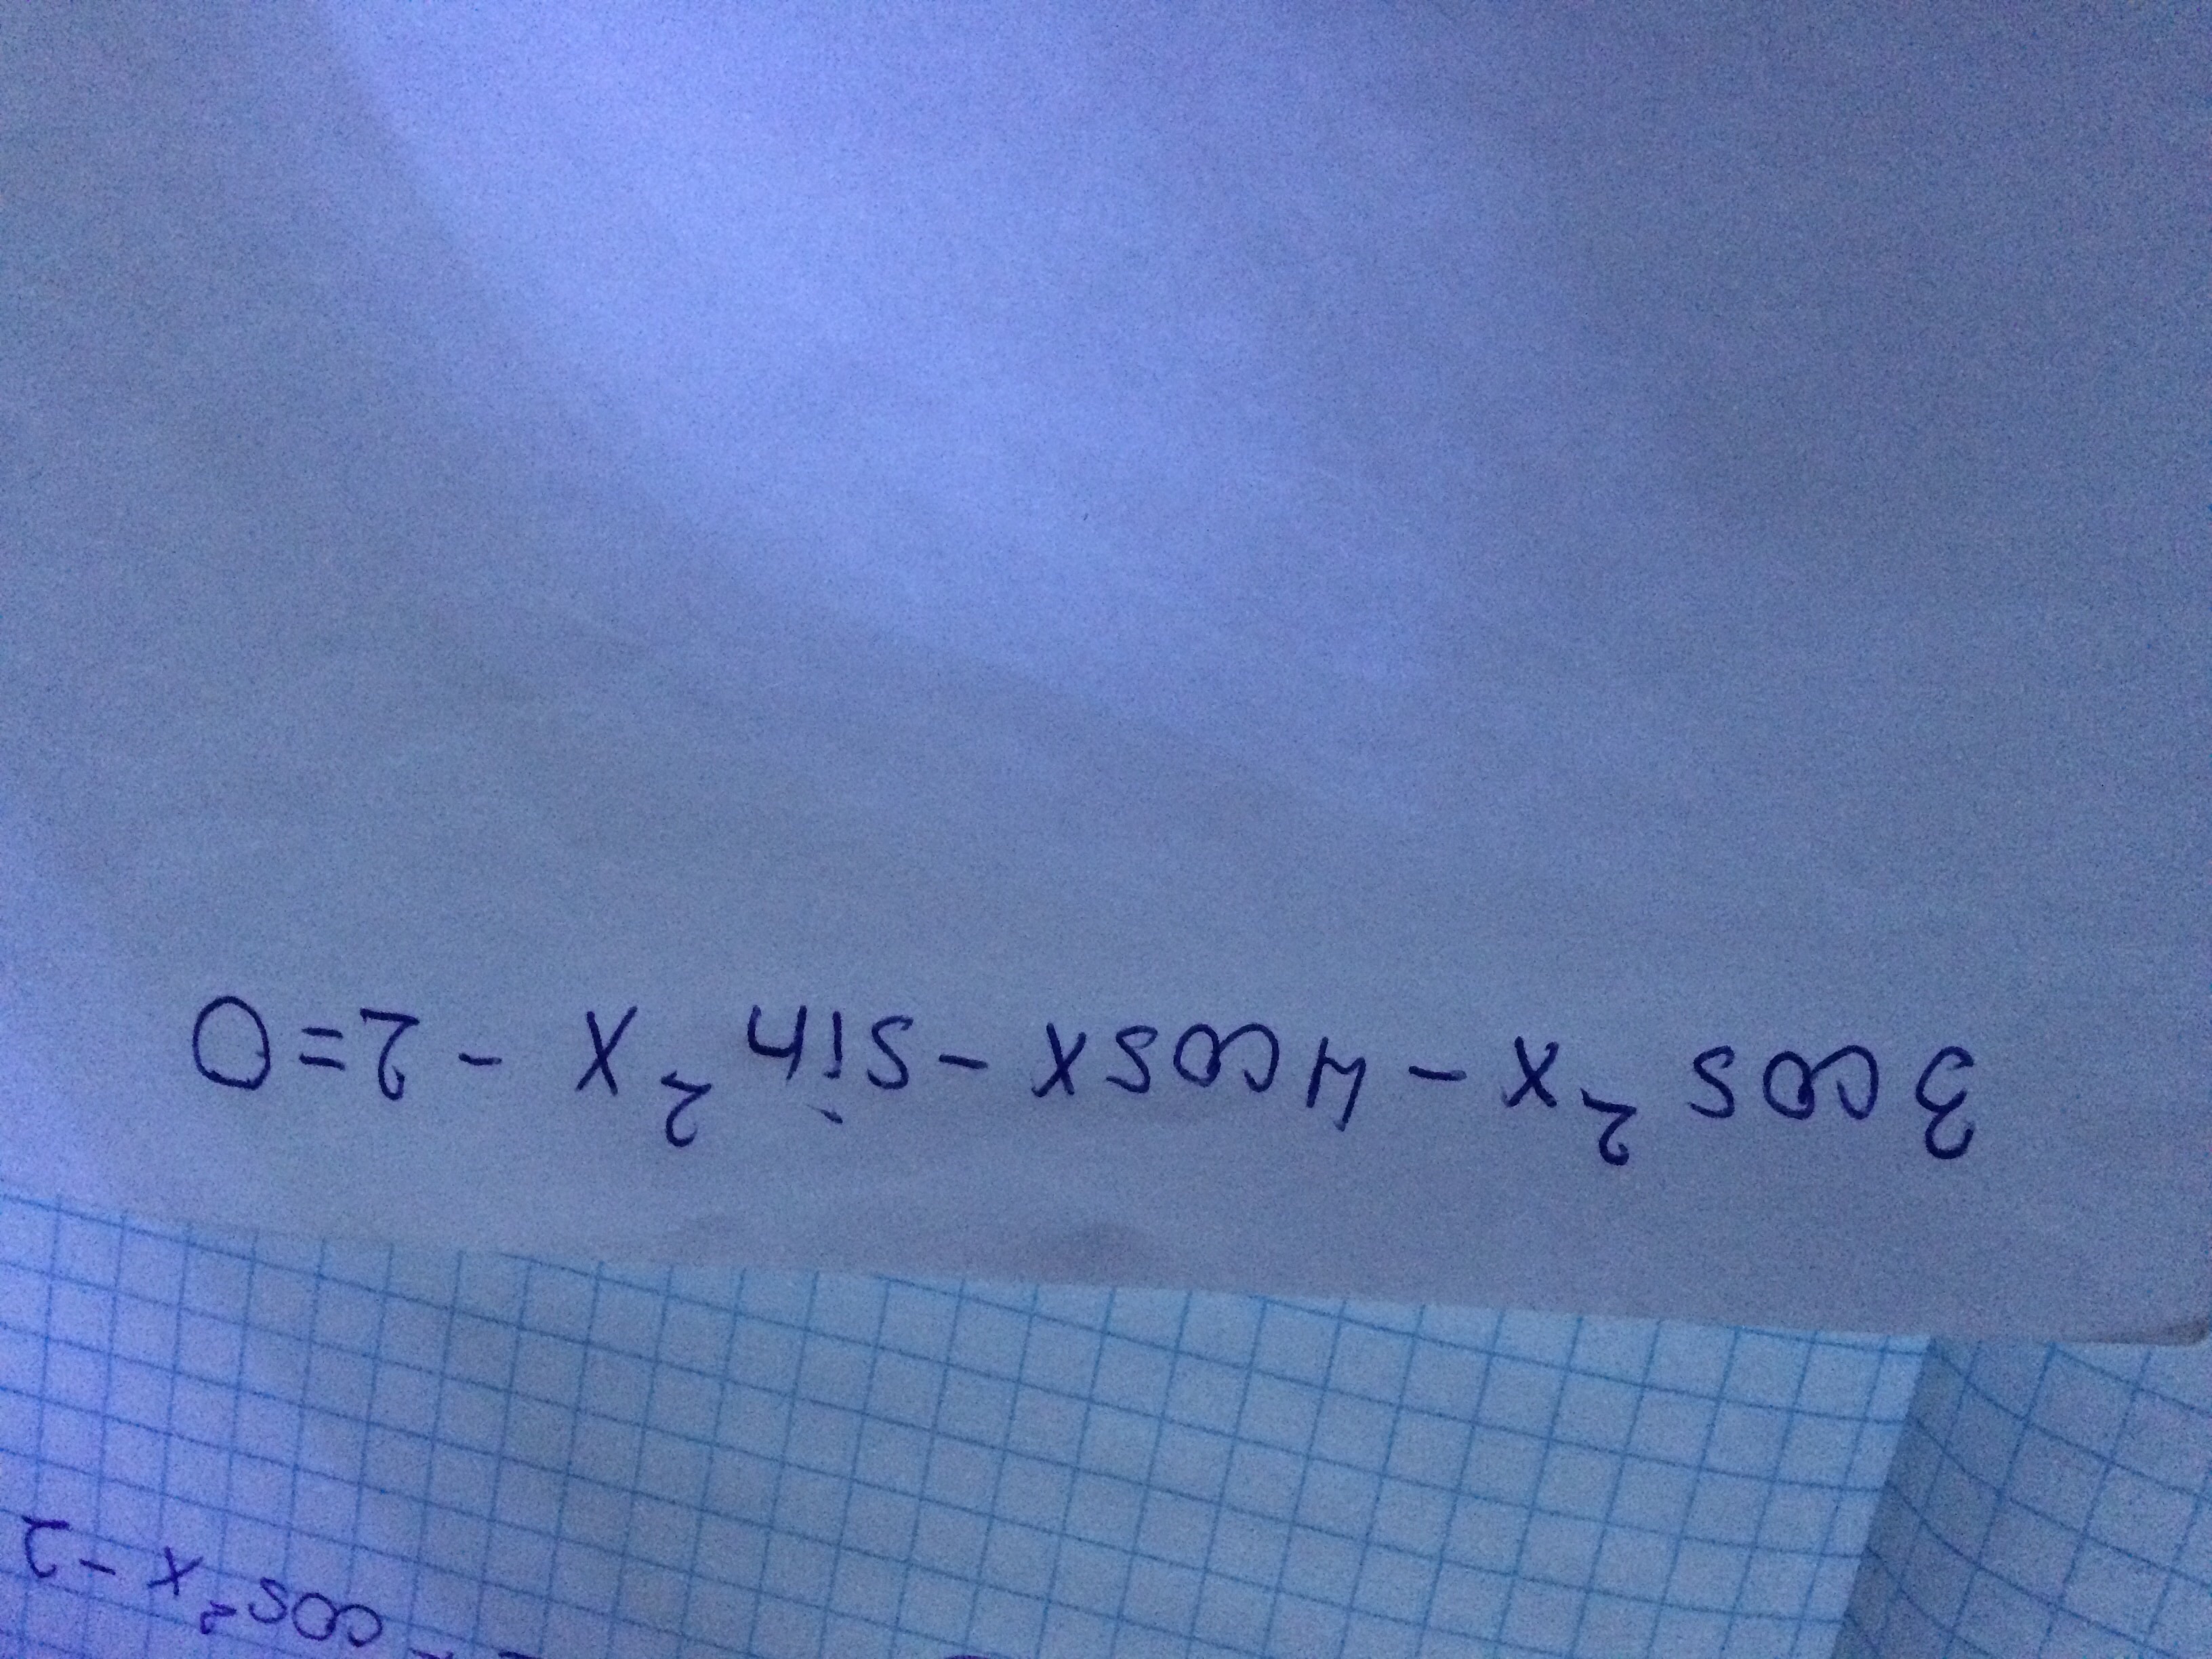 3 cos²x - 4cosx - sin²x - 2 = 0
cos²x - 2